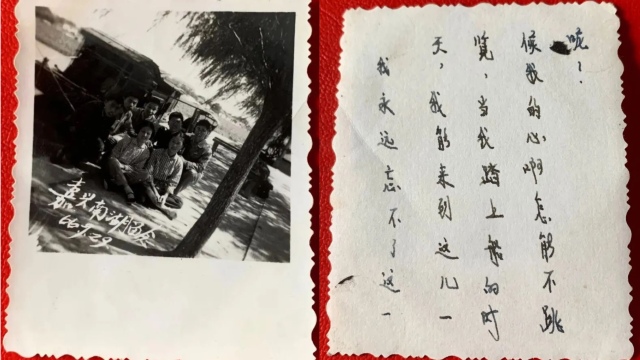 嘉兴南湖留念
我永远忘不了这一
天，我能来到这儿一
览，当我踏上船的时
候我的心啊怎能不跳
呢！